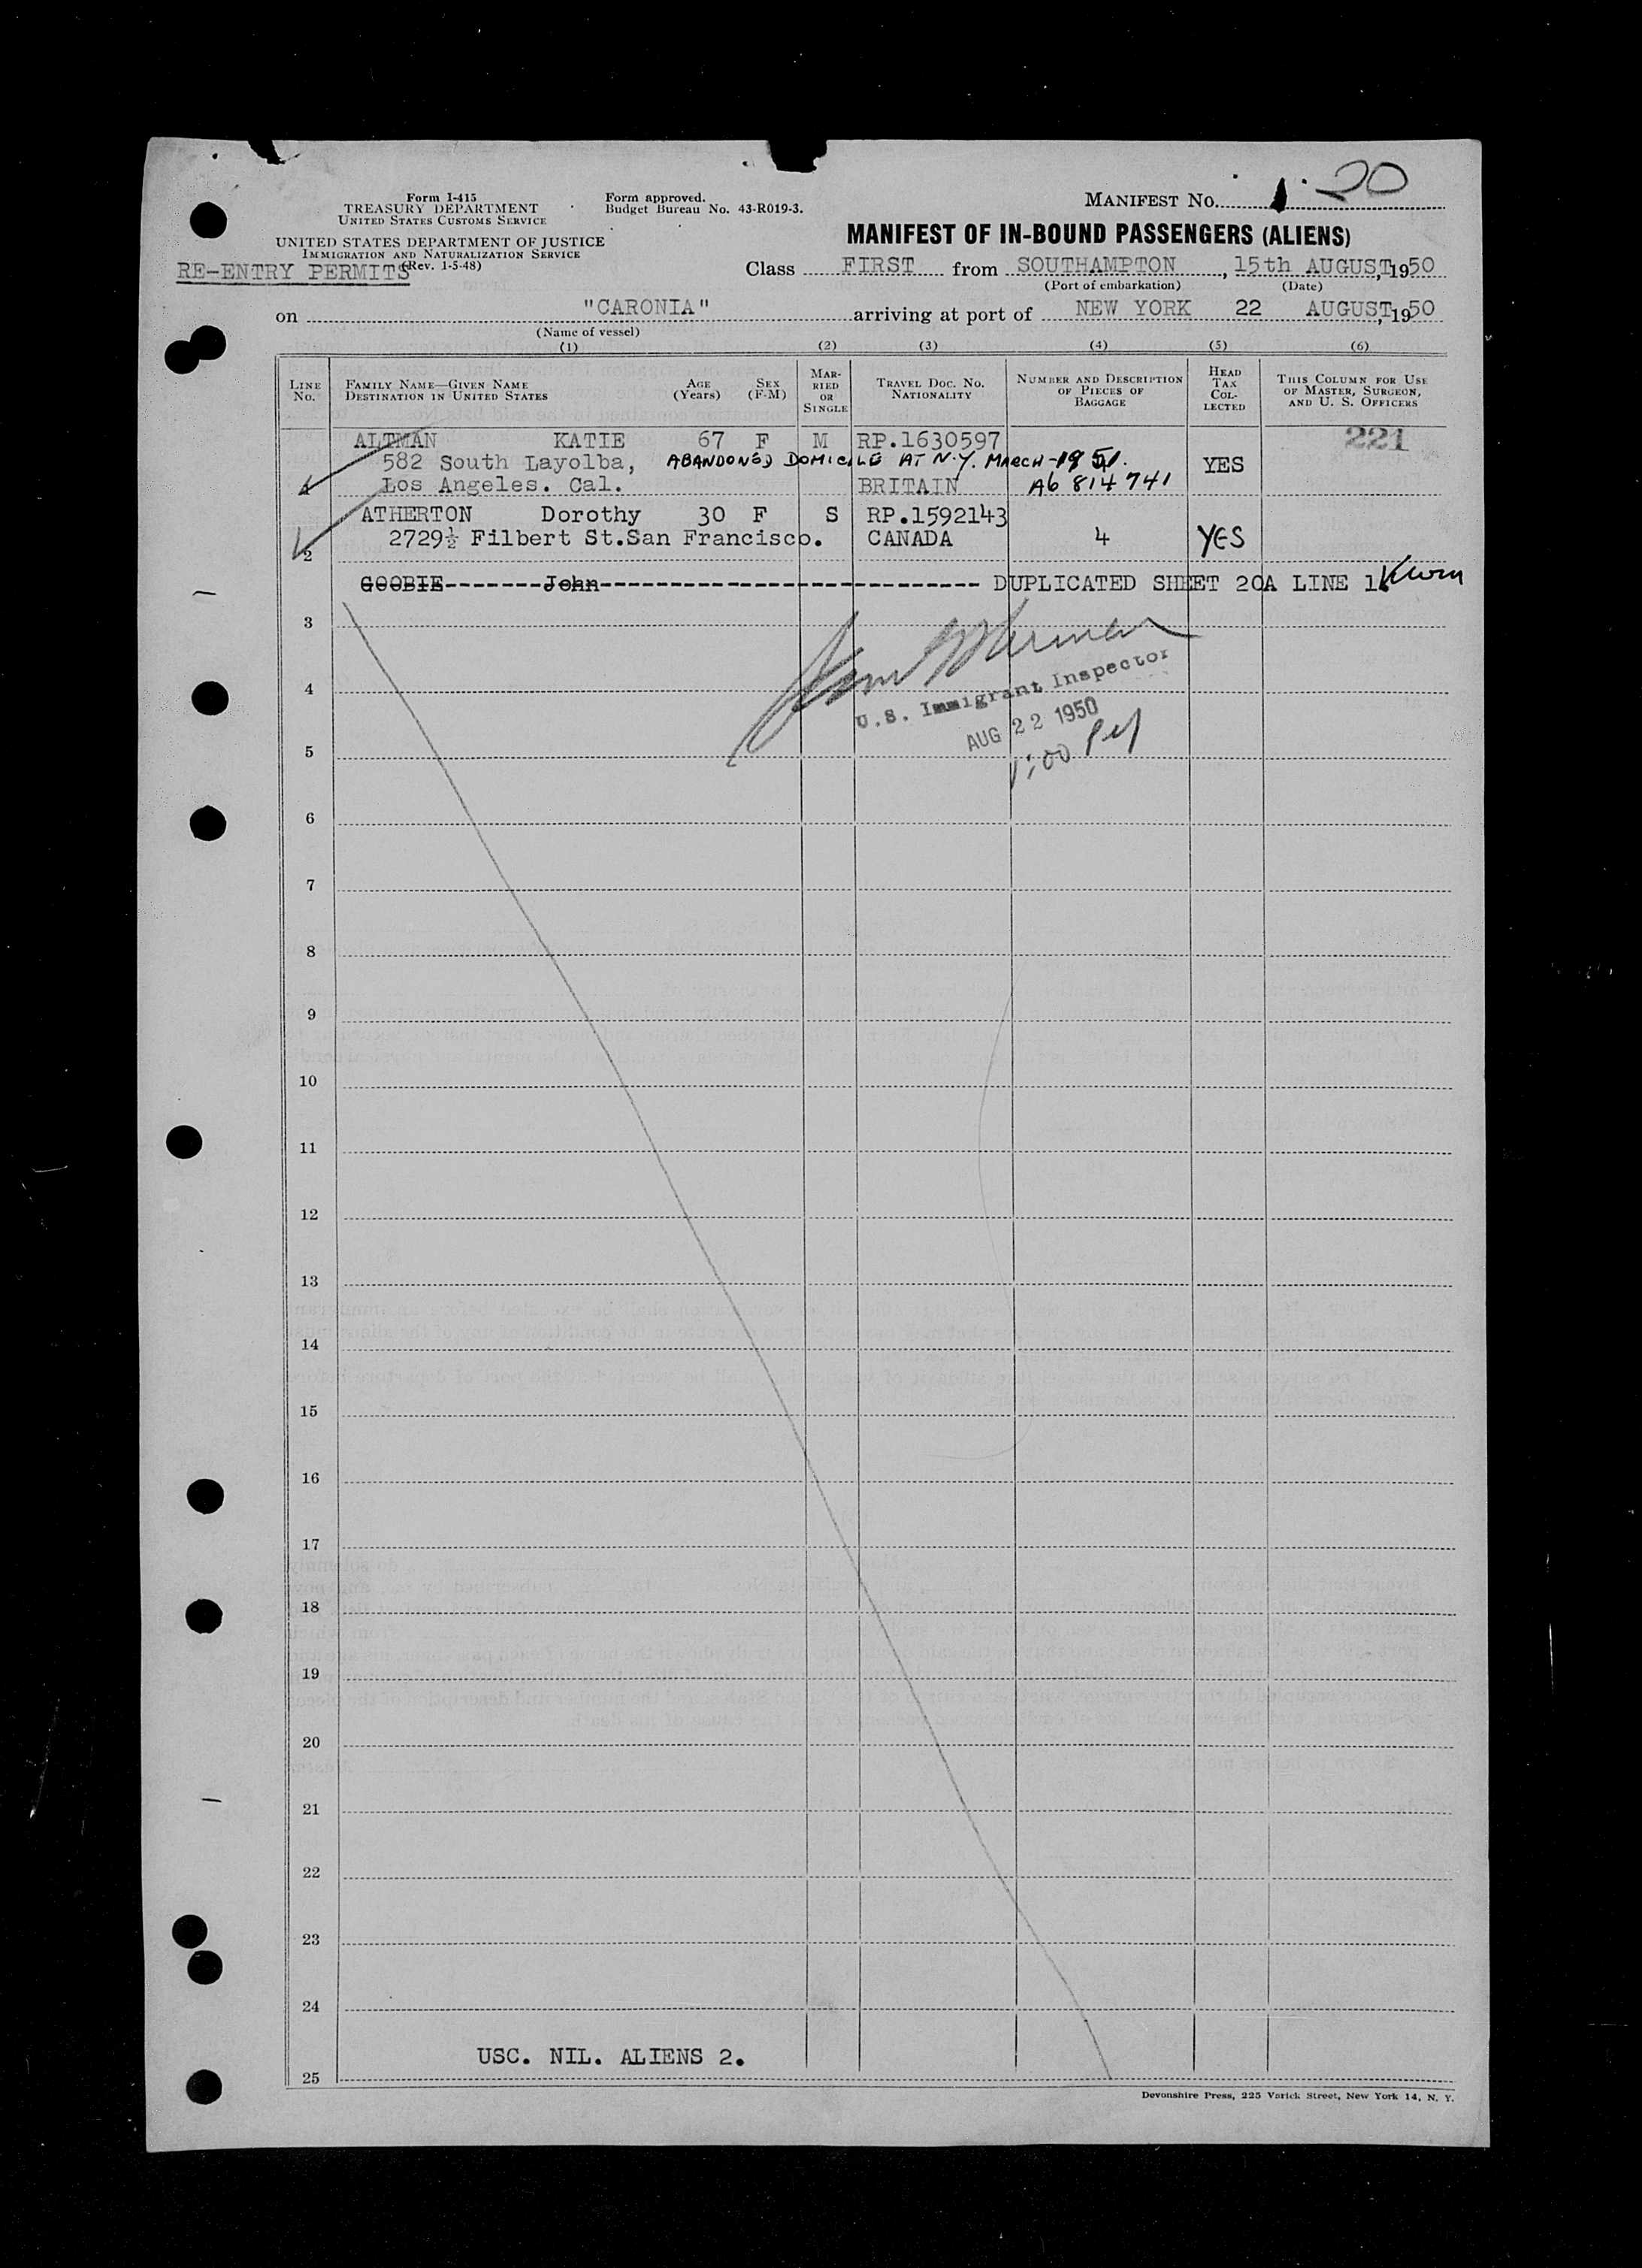 20
Form I-415
TREASURY DEPARTMENT
UNITED STATES CUSTOMS SERVICE
Form approved.
Budget Bureau No. 43-R019-3.
MANIFEST NO.
UNITED STATES DEPARTMENT OF JUSTICE
IMMIGRATION AND NATURALIZATION SERVICE
(Rev. 1-5-48)
RE-ENTRY PERMITS
MANIFEST OF IN-BOUND PASSENGERS (ALIENS)
Class FIRST from SOUTHAMPTON, 15th AUGUST, 1950
(Port of embarkation) (Date)
on "CARONIA" arriving at port of NEW YORK 22 AUGUST, 1950
(Name of vessel)
(1) (2) (3) (4) (5) (6)
LINE NO. FAMILY NAME—GIVEN NAME DESTINATION IN UNITED STATES AGE (Years) SEX (F-M) MARRIED OR SINGLE TRAVEL DOC. NO. NATIONALITY NUMBER AND DESCRIPTION OF PIECES OF BAGGAGE HEAD TAX COLLECTED THIS COLUMN FOR USE OF MASTER, SURGEON, AND U. S. OFFICERS
ALTMAN KATIE 67 F M RP.1630597 221
582 South Layolba, ABANDONED DOMICILE AT N.Y. MARCH-1951. YES
1 Los Angeles. Cal. BRITAIN A6 814 741
ATHERTON Dorothy 30 F S RP.1592143
2729½ Filbert St.San Francisco. CANADA 4 YES
2
GOOBIE-------John---------------------------- DUPLICATED SHEET 20A LINE 1.
3
4
U.S. Immigrant Inspector
AUG 22 1950
5
1:00 PM
6
7
8
9
10
11
12
13
14
15
16
17
18
19
20
21
22
23
24
USC. NIL. ALIENS 2.
25
Devonshire Press, 225 Varick Street, New York 14, N. Y.